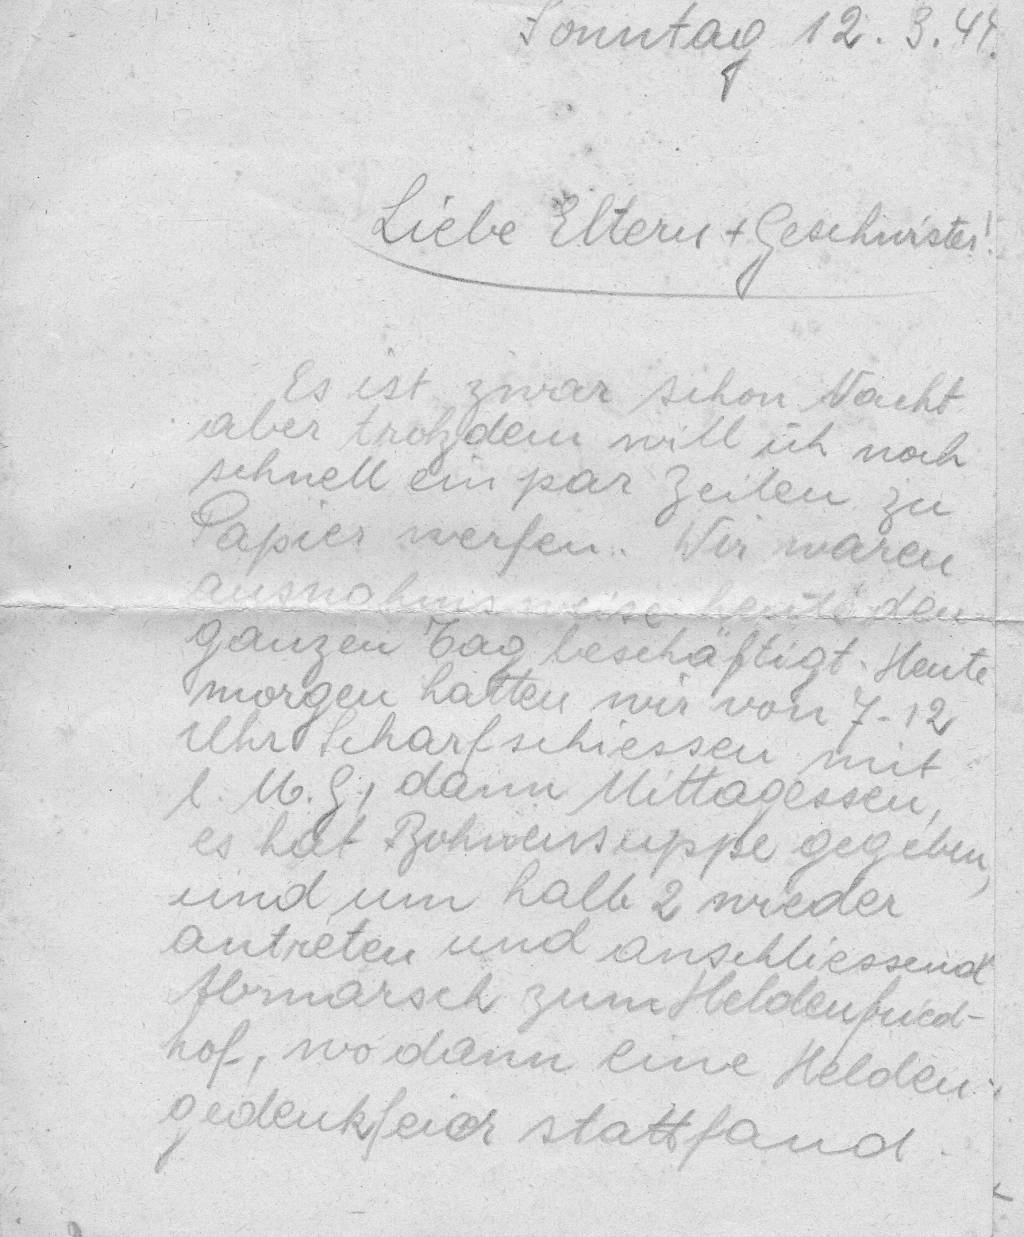 Sonntag 12. 3. 44.
Liebe Eltern + Geschwister!
Es ist zwar schon Nacht
aber trotzdem will ich noch
schnell ein par Zeilen zu
Papier werfen. Wir waren
ausnahmsweise heute den
ganzen Tag beschäftigt. Heute
morgen hatten wir von 7-12
Uhr Scharfschiessen mit
l. M. G., dann Mittagessen,
es hat Bohnensuppe gegeben,
und um halb 2 wieder
antreten und anschliessend
Abmarsch zum Heldenfried-
hof, wo dann eine Helden-
gedenkfeier stattfand.